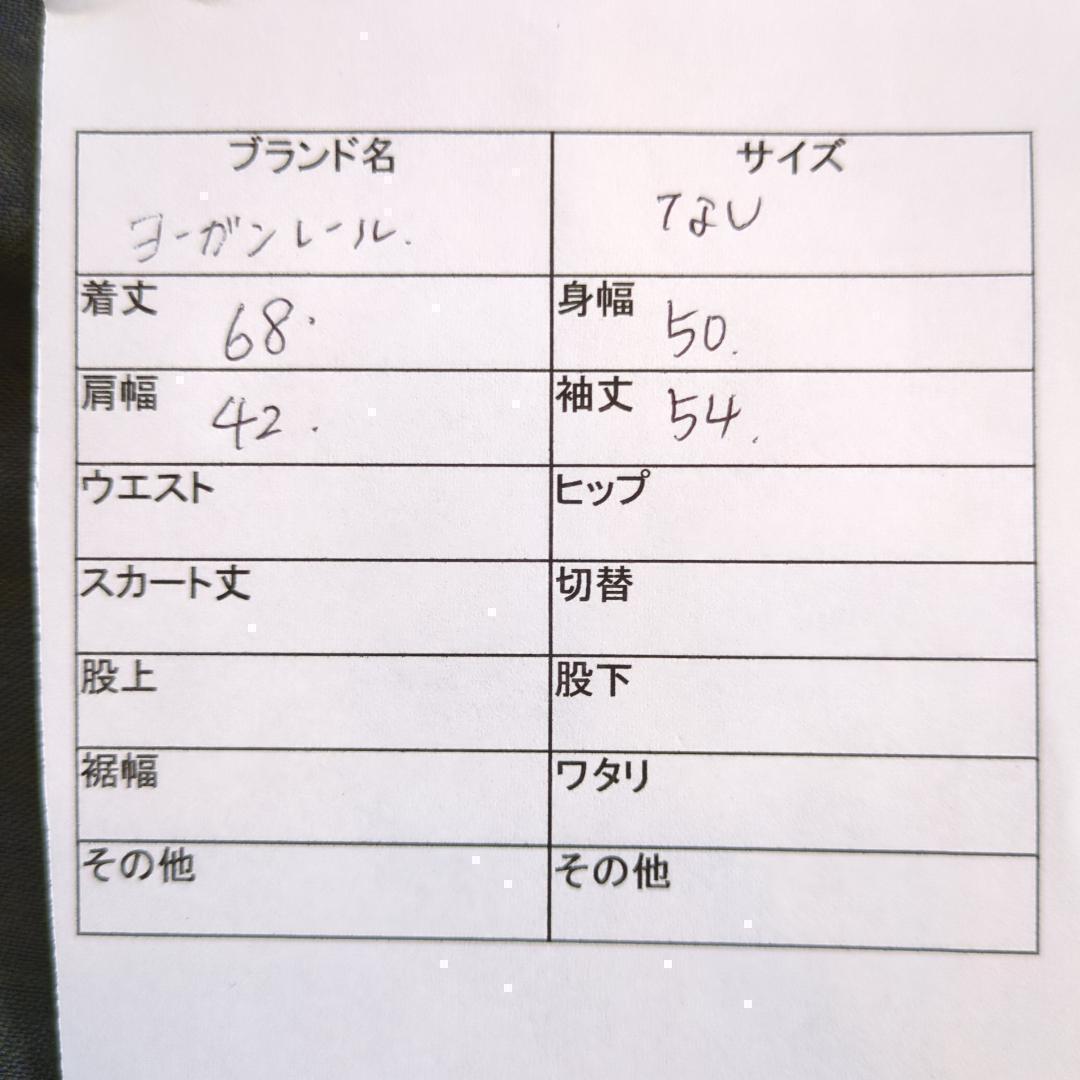 ブランド名 サイズ
ヨーガンレール. Tなし
着丈 68. 身幅 50.
肩幅 42. 袖丈 54.
ウエスト ヒップ
スカート丈 切替
股上 股下
裾幅 ワタリ
その他 その他